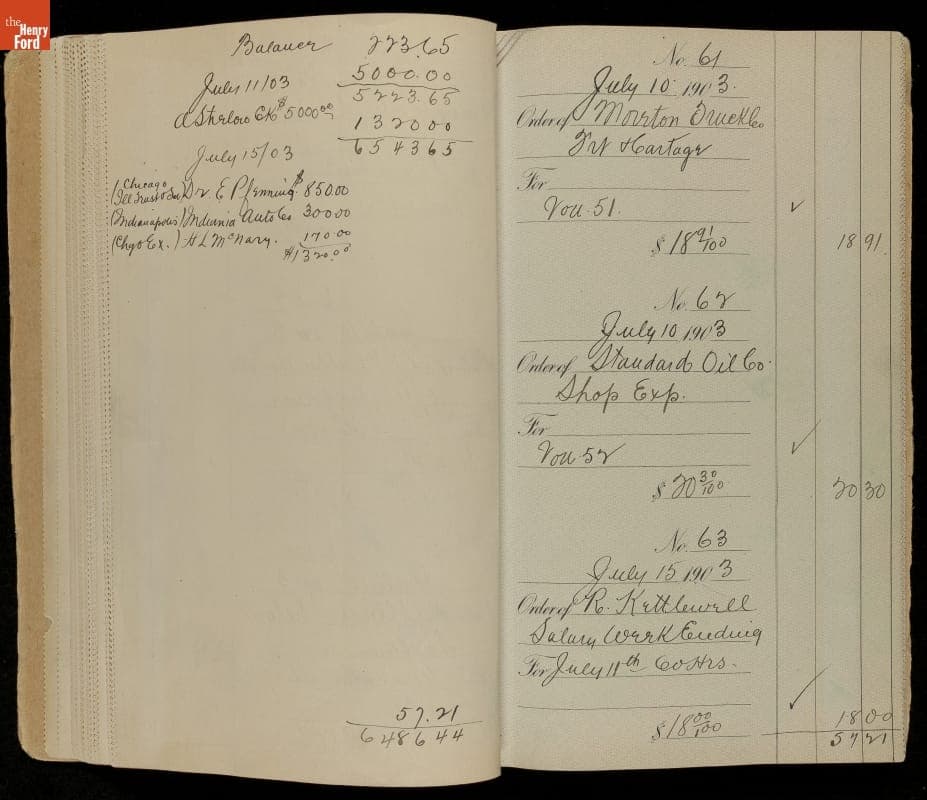 the
Henry
Ford
Balance 223.65
July 11/03 5000.00
5223.65
A Strelow Ck $5000.00
1320 00
6543 65
July 15/03
(Chicago
Ill Trust & Sav) Dr. E Pfenning $850.00
(Indianapolis) Indiana Auto Co 300 00
(Chgo Ex.) H L McNary. 170.00
$1320.00
57.21
6486 44
No. 61
July 10 1903.
Order of Moreton Truck Co
Frt & Cartage
For
Vou. 51.
$18 91/100 18 91
No. 62
July 10 1903
Order of Standard Oil Co.
Shop Exp.
For
Vou. 52
$20 30/100 20 30
No. 63
July 15 1903
Order of R. Kettlewell
Salary Week Ending
For July 11th 60 Hrs.
$18 00/100 18 00
57 21